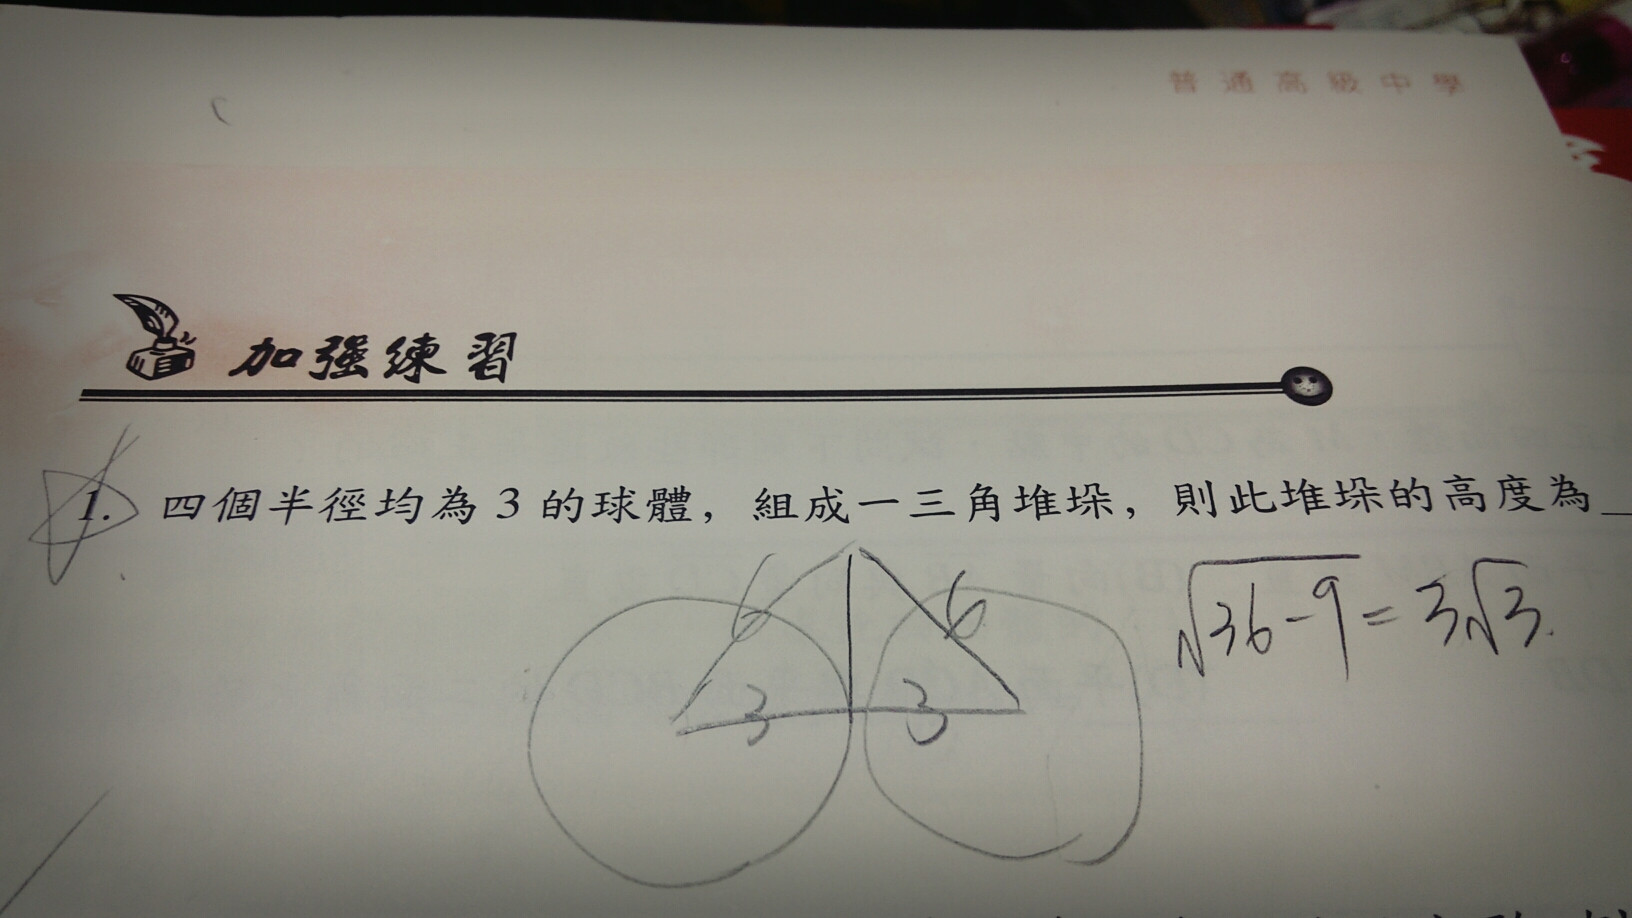 普通高級中學
加強練習
1. 四個半徑均為 3 的球體，組成一三角堆垛，則此堆垛的高度為
6 6
√36-9 = 3√3.
3 3